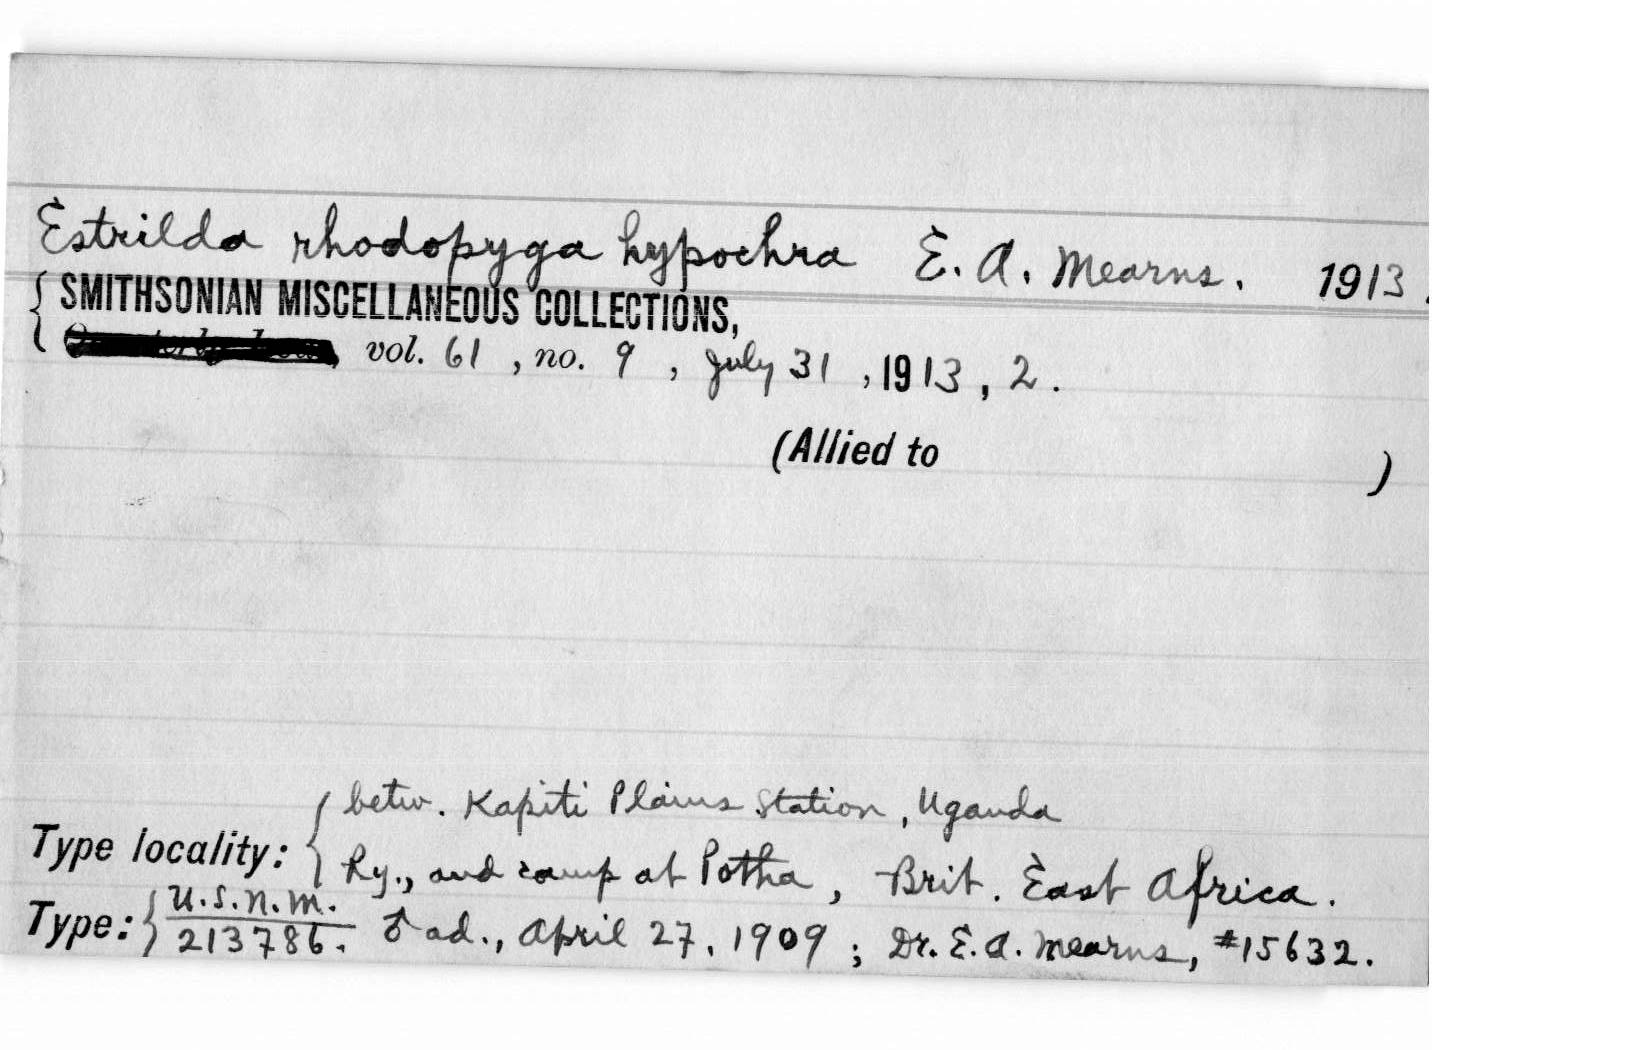 Estrilda rhodopyga hypochra E. A. Mearns. 1913.
SMITHSONIAN MISCELLANEOUS COLLECTIONS,
vol. 61, no. 9, July 31, 1913, 2.
(Allied to )
betw. Kapiti Plains Station, Uganda
Type locality: Ry., and camp at Potha, Brit. East Africa.
Type: U.S.N.M. 213786. ♂ ad., April 27, 1909; Dr. E. A. Mearns, #15632.